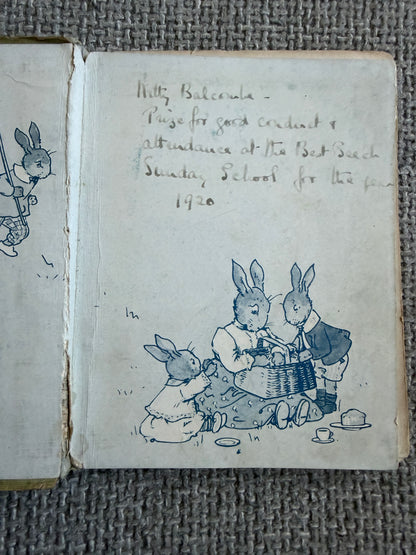 Kitty Balcombe -
Prize for good conduct &
attendance at the Best Beech
Sunday School for the year
1920